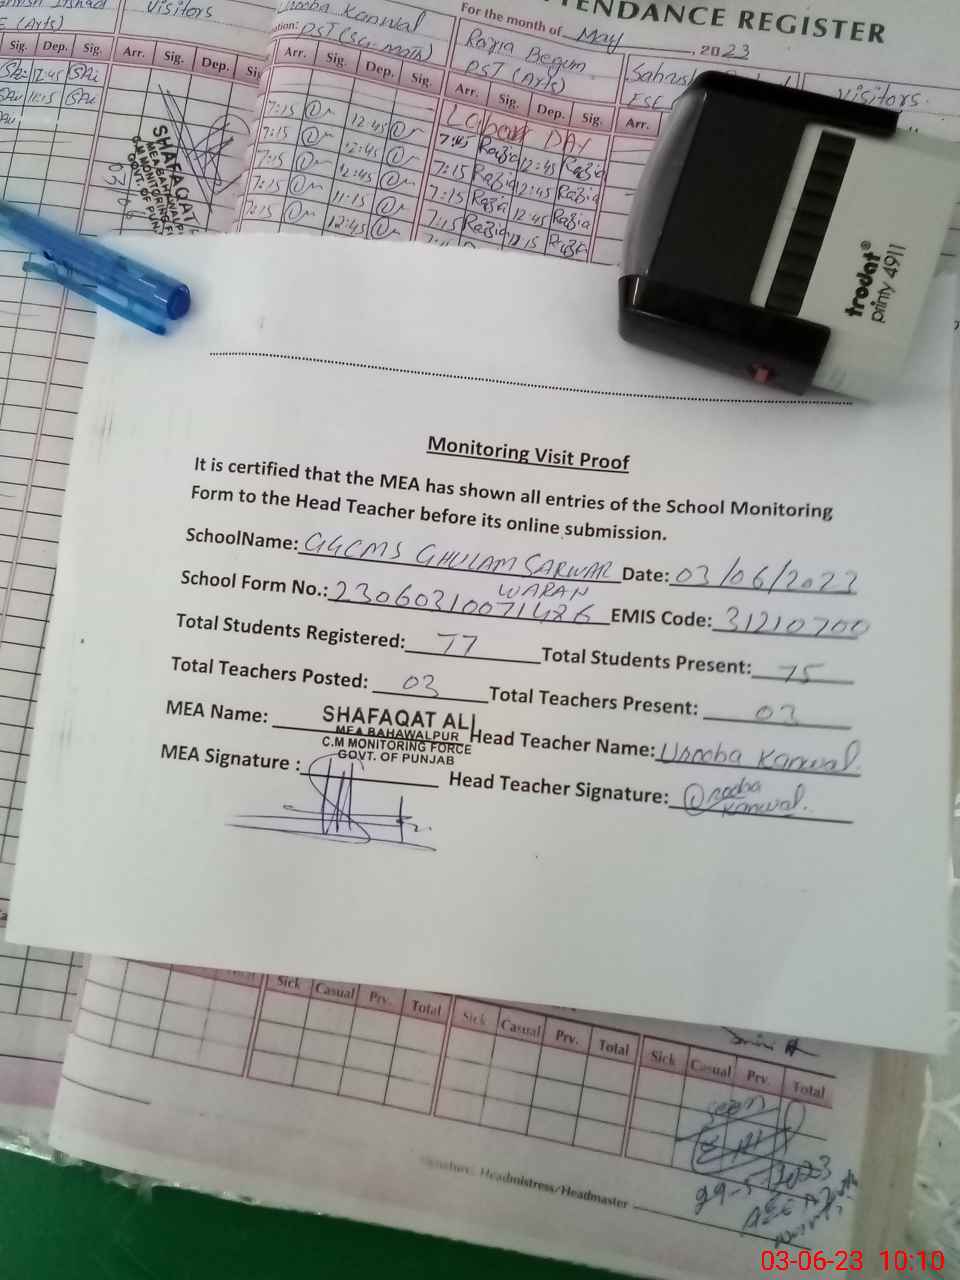 ATTENDANCE REGISTER
For the month of May, 2023
visitors
Kanwal
PST (Sci-Math)
Razia Begum
PST (Arts)
visitors.
Sig. Dep. Sig. Arr. Sig. Dep.
Arr. Sig. Dep. Sig. Arr. Sig. Dep. Sig. Arr.
12:45
11:15
7:15 12:45
7:15 12:45
7:15 12:45
7:15 11:15
7:15 12:45
DAY
7:45 Razia 12:45 Razia
7:15 Razia 12:45 Razia
7:15 Razia 12:45 Razia
7:15 Razia 12:15 Razia
SHAFAQAT
MEA BAHAWALPU
C.M MONITORING F
GOVT. OF PUNJ
trodat®
printy 4911
Monitoring Visit Proof
It is certified that the MEA has shown all entries of the School Monitoring
Form to the Head Teacher before its online submission.
SchoolName: GGCMS GHULAM SARWAR Date: 03/06/2023
WARAN
School Form No.: 23060310071426 EMIS Code: 31210700
Total Students Registered: 77 Total Students Present: 75
Total Teachers Posted: 03 Total Teachers Present: 03
MEA Name: SHAFAQAT ALI Head Teacher Name: Unooba Kanwal.
MEA BAHAWALPUR
C.M MONITORING FORCE
GOVT. OF PUNJAB
MEA Signature : Head Teacher Signature: Unooba
Kanwal.
Total Sick Casual Prv. Total Sick Casual Prv. Total Sick Casual Prv. Total
seen
29-5-2023
Signature: Headmistress/Headmaster
03-06-23 10:10